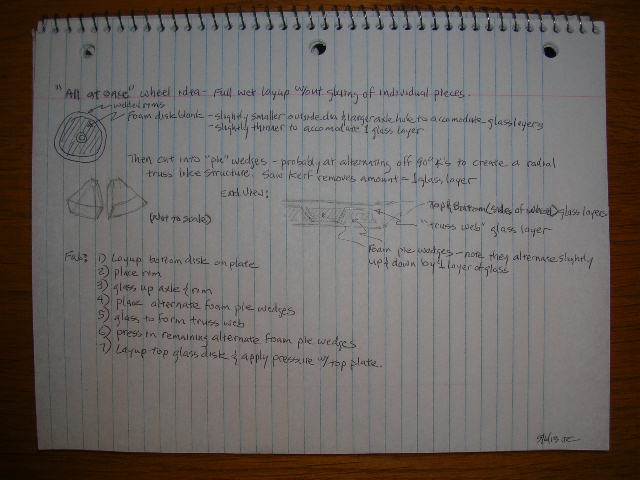 "All at once" wheel idea - Full wet layup w/out gluing of individual pieces.
molded rims
Foam disk blank - slightly smaller outside dia & larger axle hole to accomodate glass layers
- slightly thinner to accomodate 1 glass layer
Then cut into "pie" wedges - probably at alternating off 90° X's to create a radial
truss like structure. Saw kerf removes amount = 1 glass layer
End View:
(Not to scale)
Top & Bottom (sides of wheel) glass layers
"truss web" glass layer
Foam pie wedges - note they alternate slightly
up & down by 1 layer of glass
Fab: 1) Layup bottom disk on plate
2) place rim
3) glass up axle & rim
4) place alternate foam pie wedges
5) glass to form truss web
6) press in remaining alternate foam pie wedges
7) Layup top glass disk & apply pressure w/ top plate.